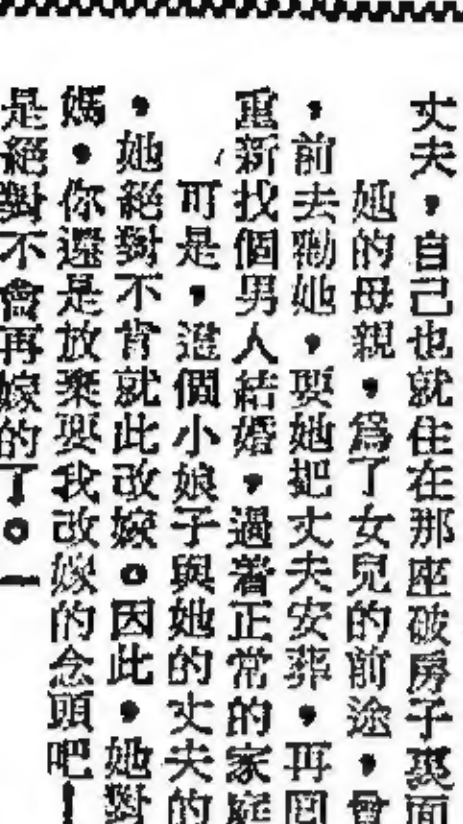 丈夫，自己也就住在那座破房子裏面
她的母親，爲了女兒的前途，會
，前去勸她，要她把丈夫安葬，再回
重新找個男人結婚，過着正常的家庭
可是，這個小娘子與她的丈夫的
，她絕對不肯就此改嫁。因此，她對
媽，你還是放棄要我改嫁的念頭吧！
是絕對不會再嫁的了。一